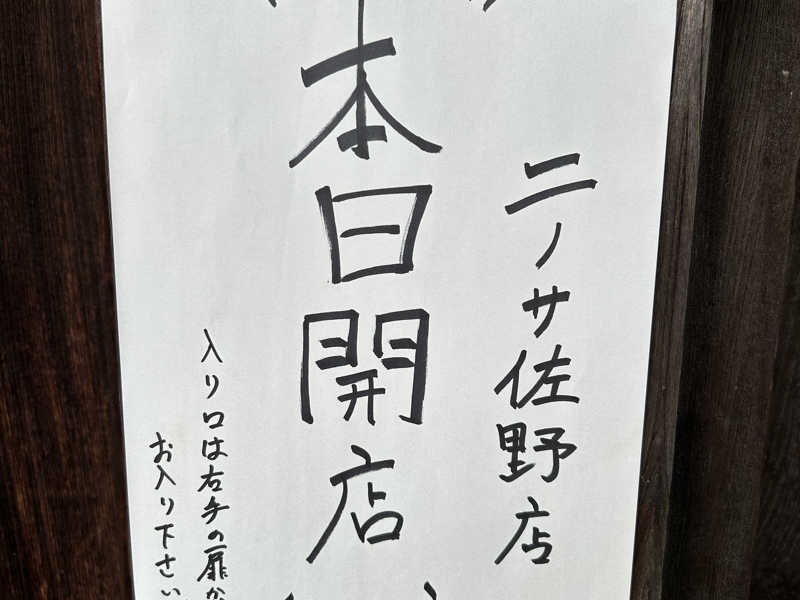 二ノサ佐野店
本日開店
入り口は右手の扉か
お入り下さい